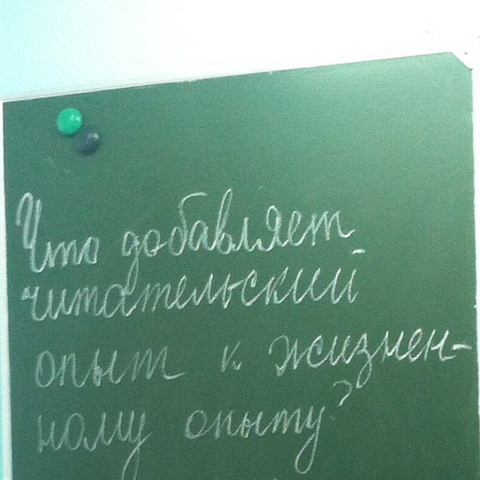 Что добавляет
читательский
опыт к жизнен-
ному опыту?